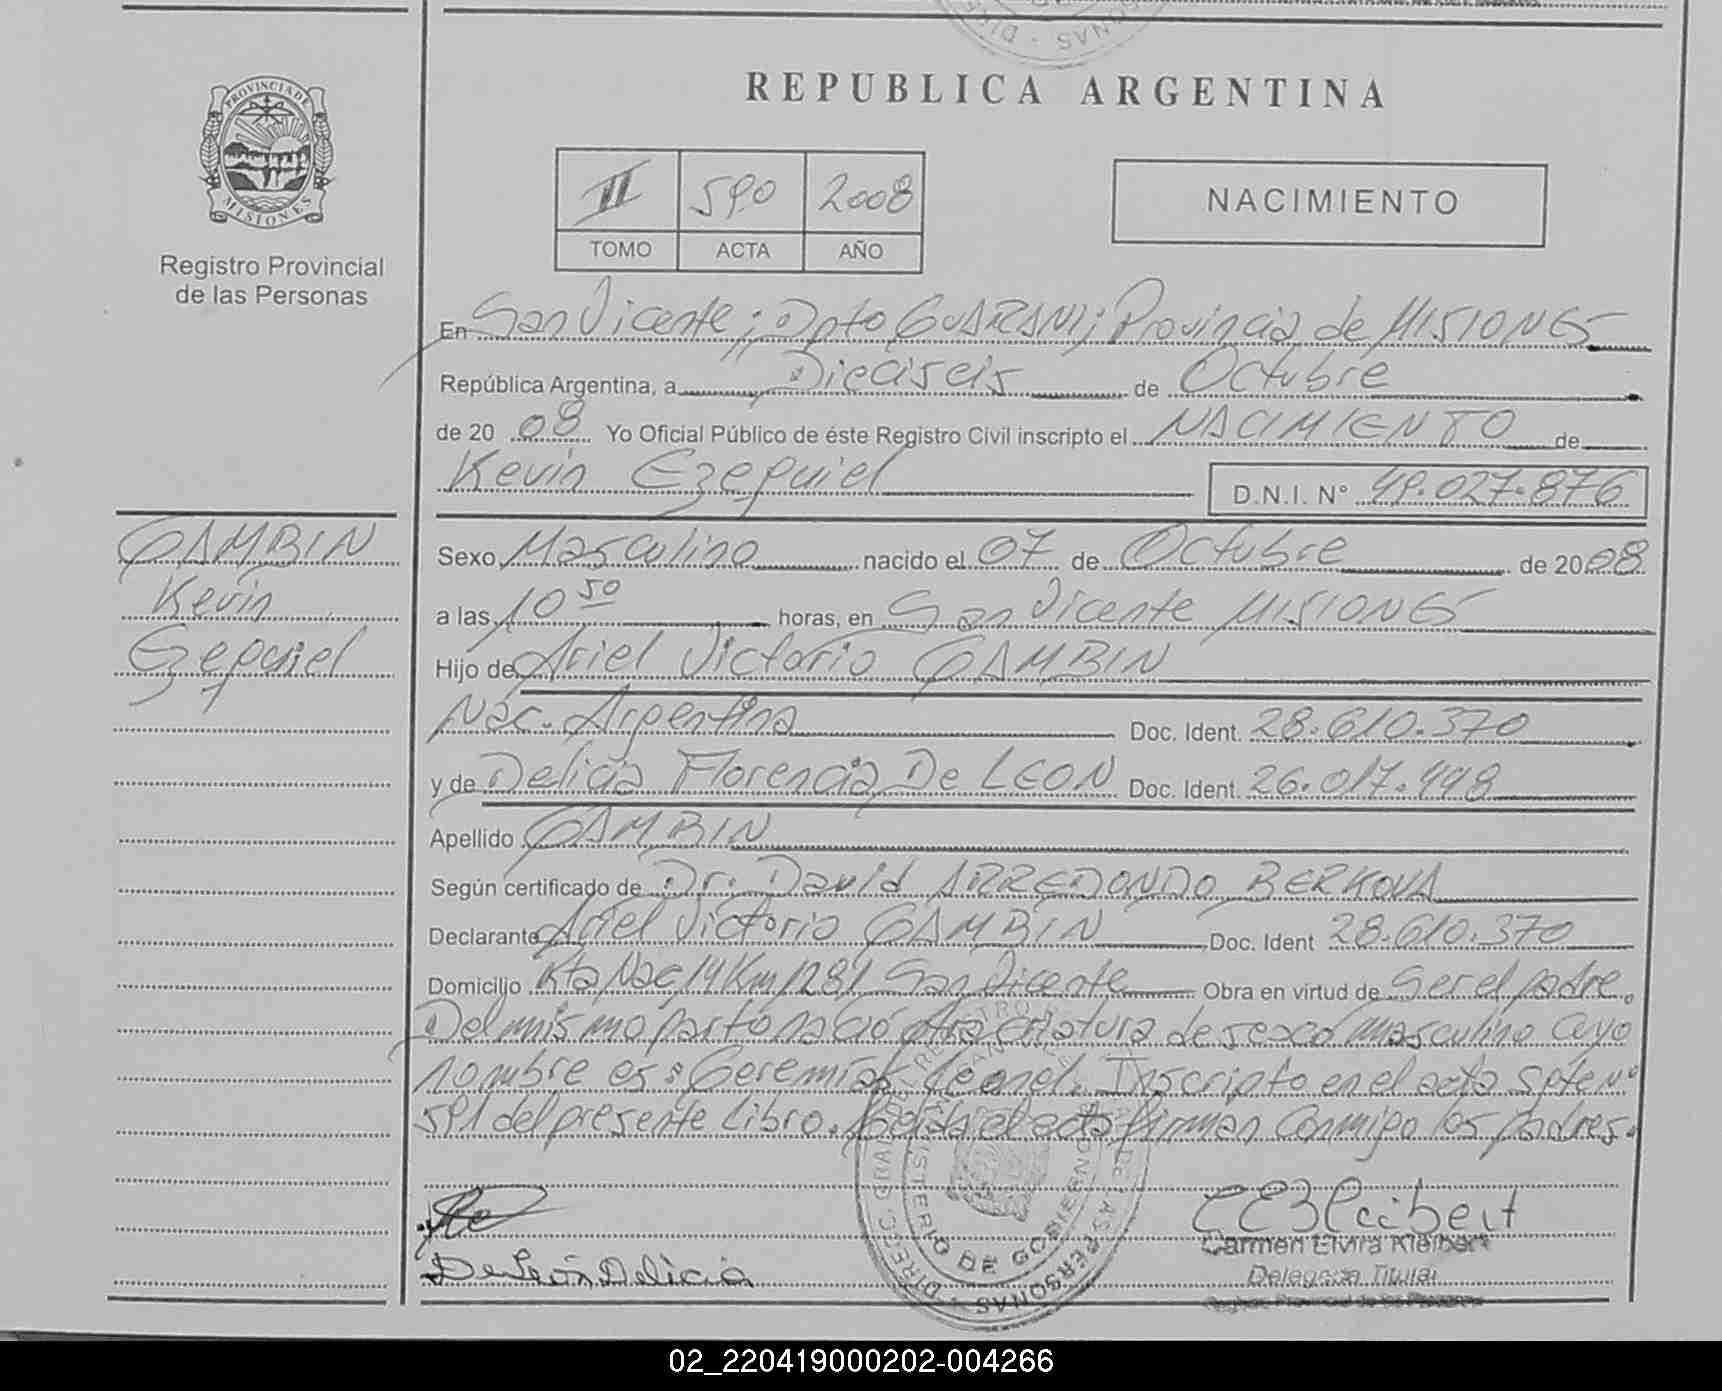 REPUBLICA ARGENTINA
PROVINCIA DE
MISIONES
Registro Provincial
de las Personas
II 590 2008
TOMO ACTA AÑO
NACIMIENTO
En San Vicente; Dpto GUARANI; Provincia de MISIONES
República Argentina, a Dieciseis de Octubre
de 20 08 Yo Oficial Público de éste Registro Civil inscripto el NACIMIENTO de
Kevin Ezequiel D.N.I. Nº 49.027.876
GAMBIN
Kevin
Ezequiel
Sexo Masculino nacido el 07 de Octubre de 2008
a las 10 50 horas, en San Vicente MISIONES
Hijo de Ariel Victorio GAMBIN
Nac. Argentina Doc. Ident. 28.610.370
y de Delicia Florencia De LEON Doc. Ident. 26.017.448
Apellido GAMBIN
Según certificado de Dr. David ARREDONDO BERKOVA
Declarante Ariel Victorio GAMBIN Doc. Ident 28.610.370
Domicilio Rta Nac 14 Km 1281 San Vicente Obra en virtud de Ser el padre.
Del mismo parto nació otra criatura de sexo masculino cuyo
nombre es: Geremías Leonel. Inscripto en el acta Spte Nº
591 del presente Libro. el acta firman Conmigo los padres.
De León Delicia
Carmen Elvira Kleibert
Delegada Titular
Registro Provincial de las Personas
MINISTERIO DE GOBIERNO
DIREC. GRAL. PERSONAS
02_220419000202-004266